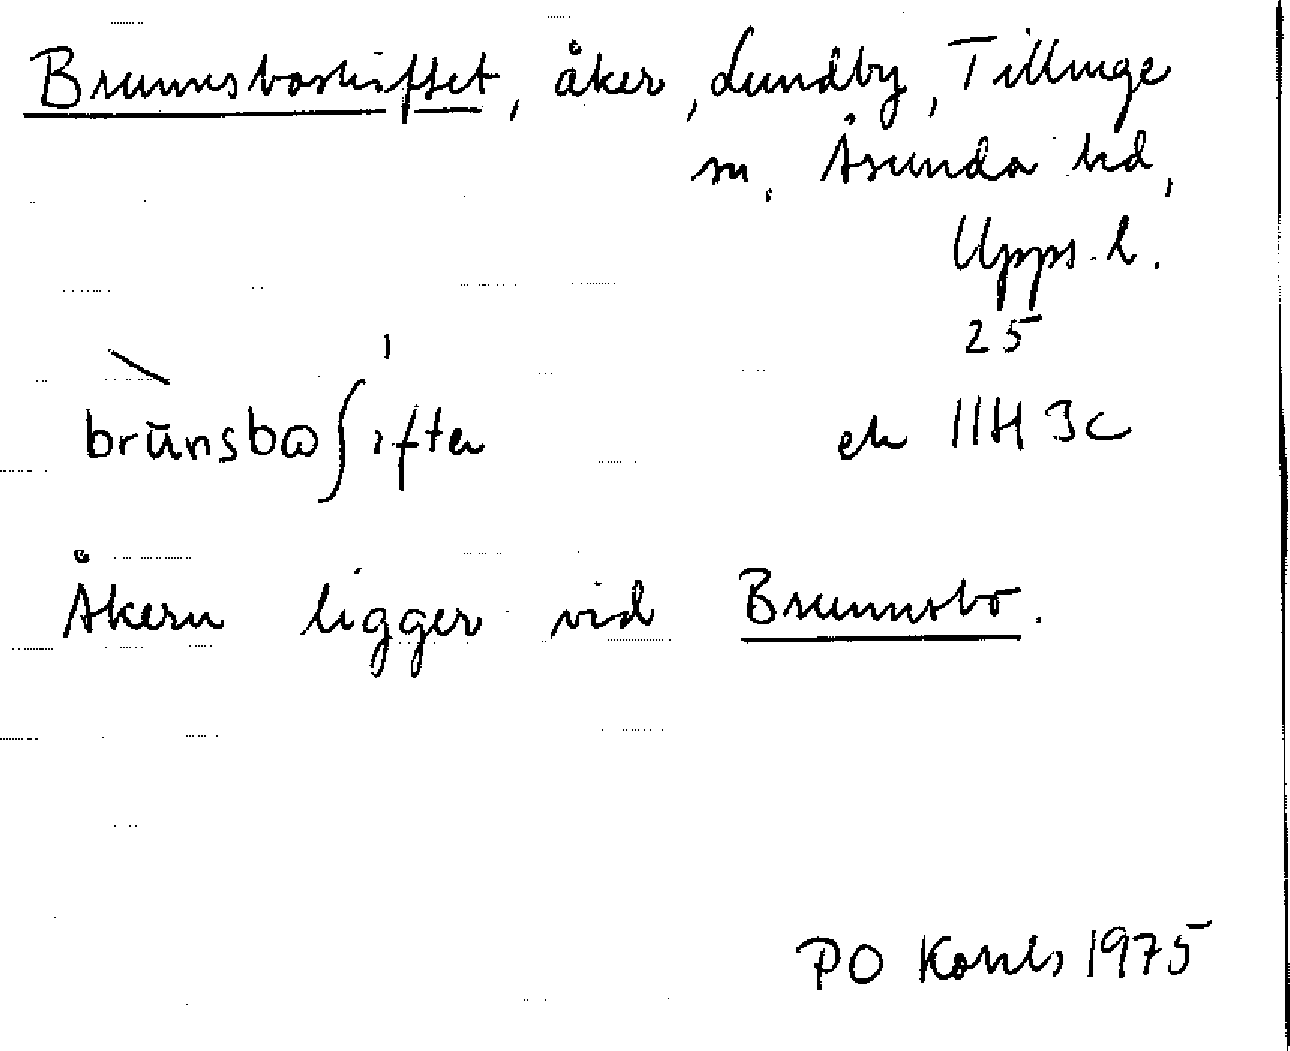 Brunnsboskiftet, åker, Lundby, Tillinge
sn, Åsunda hd,
Upps. l.
25
brūnsbω∫iftǝ
ek 11H 3c
Åkern ligger vid Brunnsbo.
PO 1975